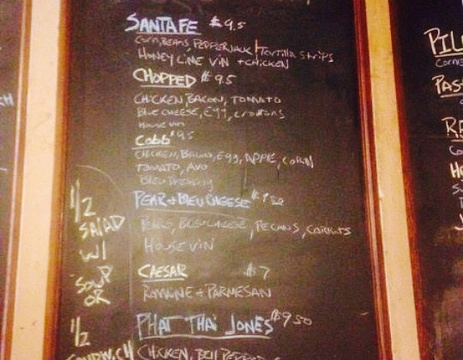 SANTA FE $9.5
CORN, BEANS, PEPPERJACK, TORTILLA STRIPS
HONEY LIME VIN + CHICKEN
CHOPPED $9.5
CHICKEN, BACON, TOMATO
BLUE CHEESE, EGG, CROUTONS
HOUSE VIN
COBB $9.5
CHICKEN, BACON, EGG, APPLE, CORN
TOMATO, AVO
BLEU DRESSING
PEAR + BLEU CHEESE
PEARS, BLEU CHEESE, PECANS,
HOUSE VIN
CAESAR $7
ROMAINE + PARMESAN
PHAT THAI JONES $9.50
CHICKEN, BELL
1/2
SALAD
W/
SOUP
OR
1/2
SANDWICH
PIL
PAST